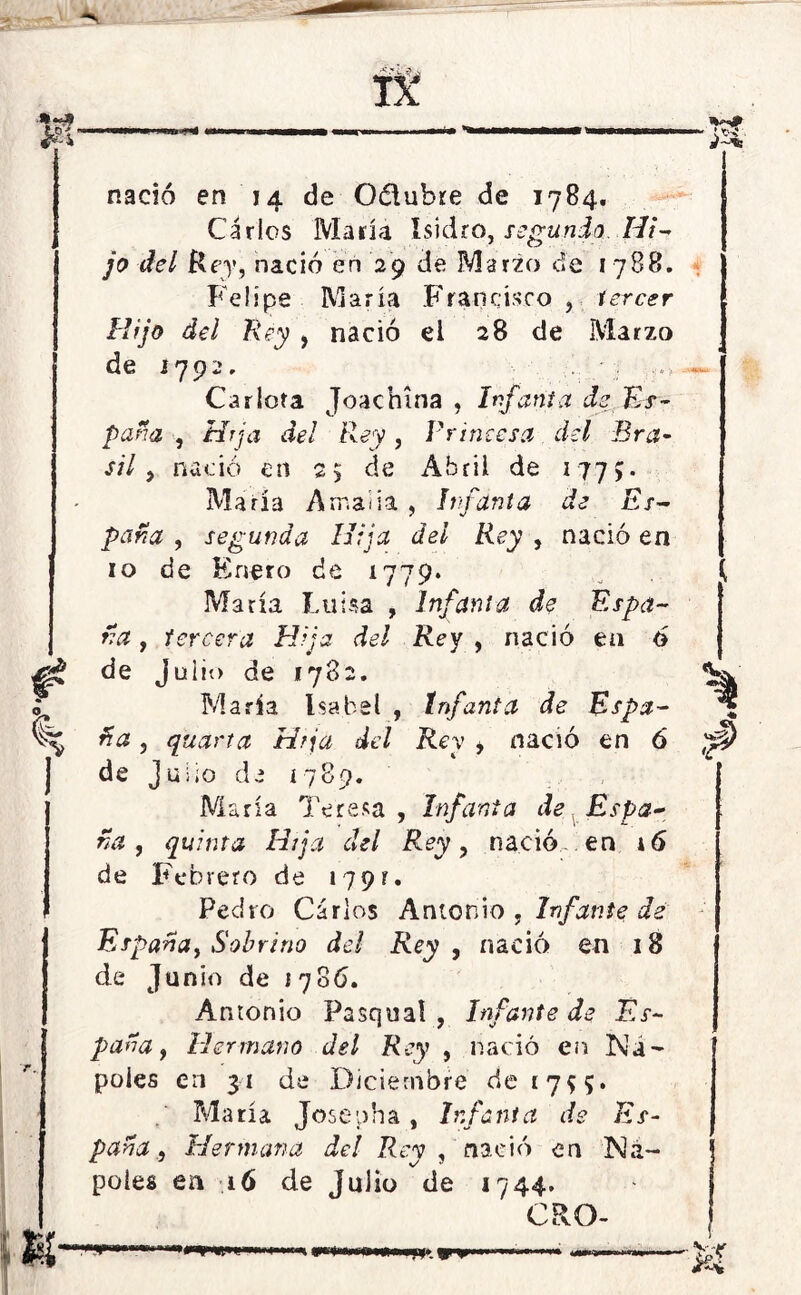 IX
nació en 14 de Octubre de 1784.
Cárlos María Isidro, segundo Hi-
jo del Rey, nació en 29 de Marzo de 1788.
Felipe María Francisco, tercer
Hijo del Rey, nació el 28 de Marzo
de 1792.
Carlota Joachîna, Infanta de Es-
paña, Hija del Rey, Princesa del Bra-
sil, nació en 25 de Abril de 1775.
María Amalia, Infanta de Es-
paña, segunda Hija del Rey, nació en
10 de Enero de 1779.
María Luisa, Infanta de Espa-
ña, tercera Hija del Rey, nació en 6
de Julio de 1782.
María Isabel, Infanta de Espa-
ña, quarta Hija del Rey, nació en 6
de Julio de 1789.
María Teresa, Infanta de Espa-
ña, quinta Hija del Rey, nació en 16
de Febrero de 1791.
Pedro Cárlos Antonio, Infante de
España, Sobrino del Rey, nació en 18
de Junio de 1786.
Antonio Pasqual, Infante de Es-
paña, Hermano del Rey, nació en Ná-
poles en 31 de Diciembre de 1755.
María Josepha, Infanta de Es-
paña, Hermana del Rey, nació en Ná-
poles en 16 de Julio de 1744.
CRO-